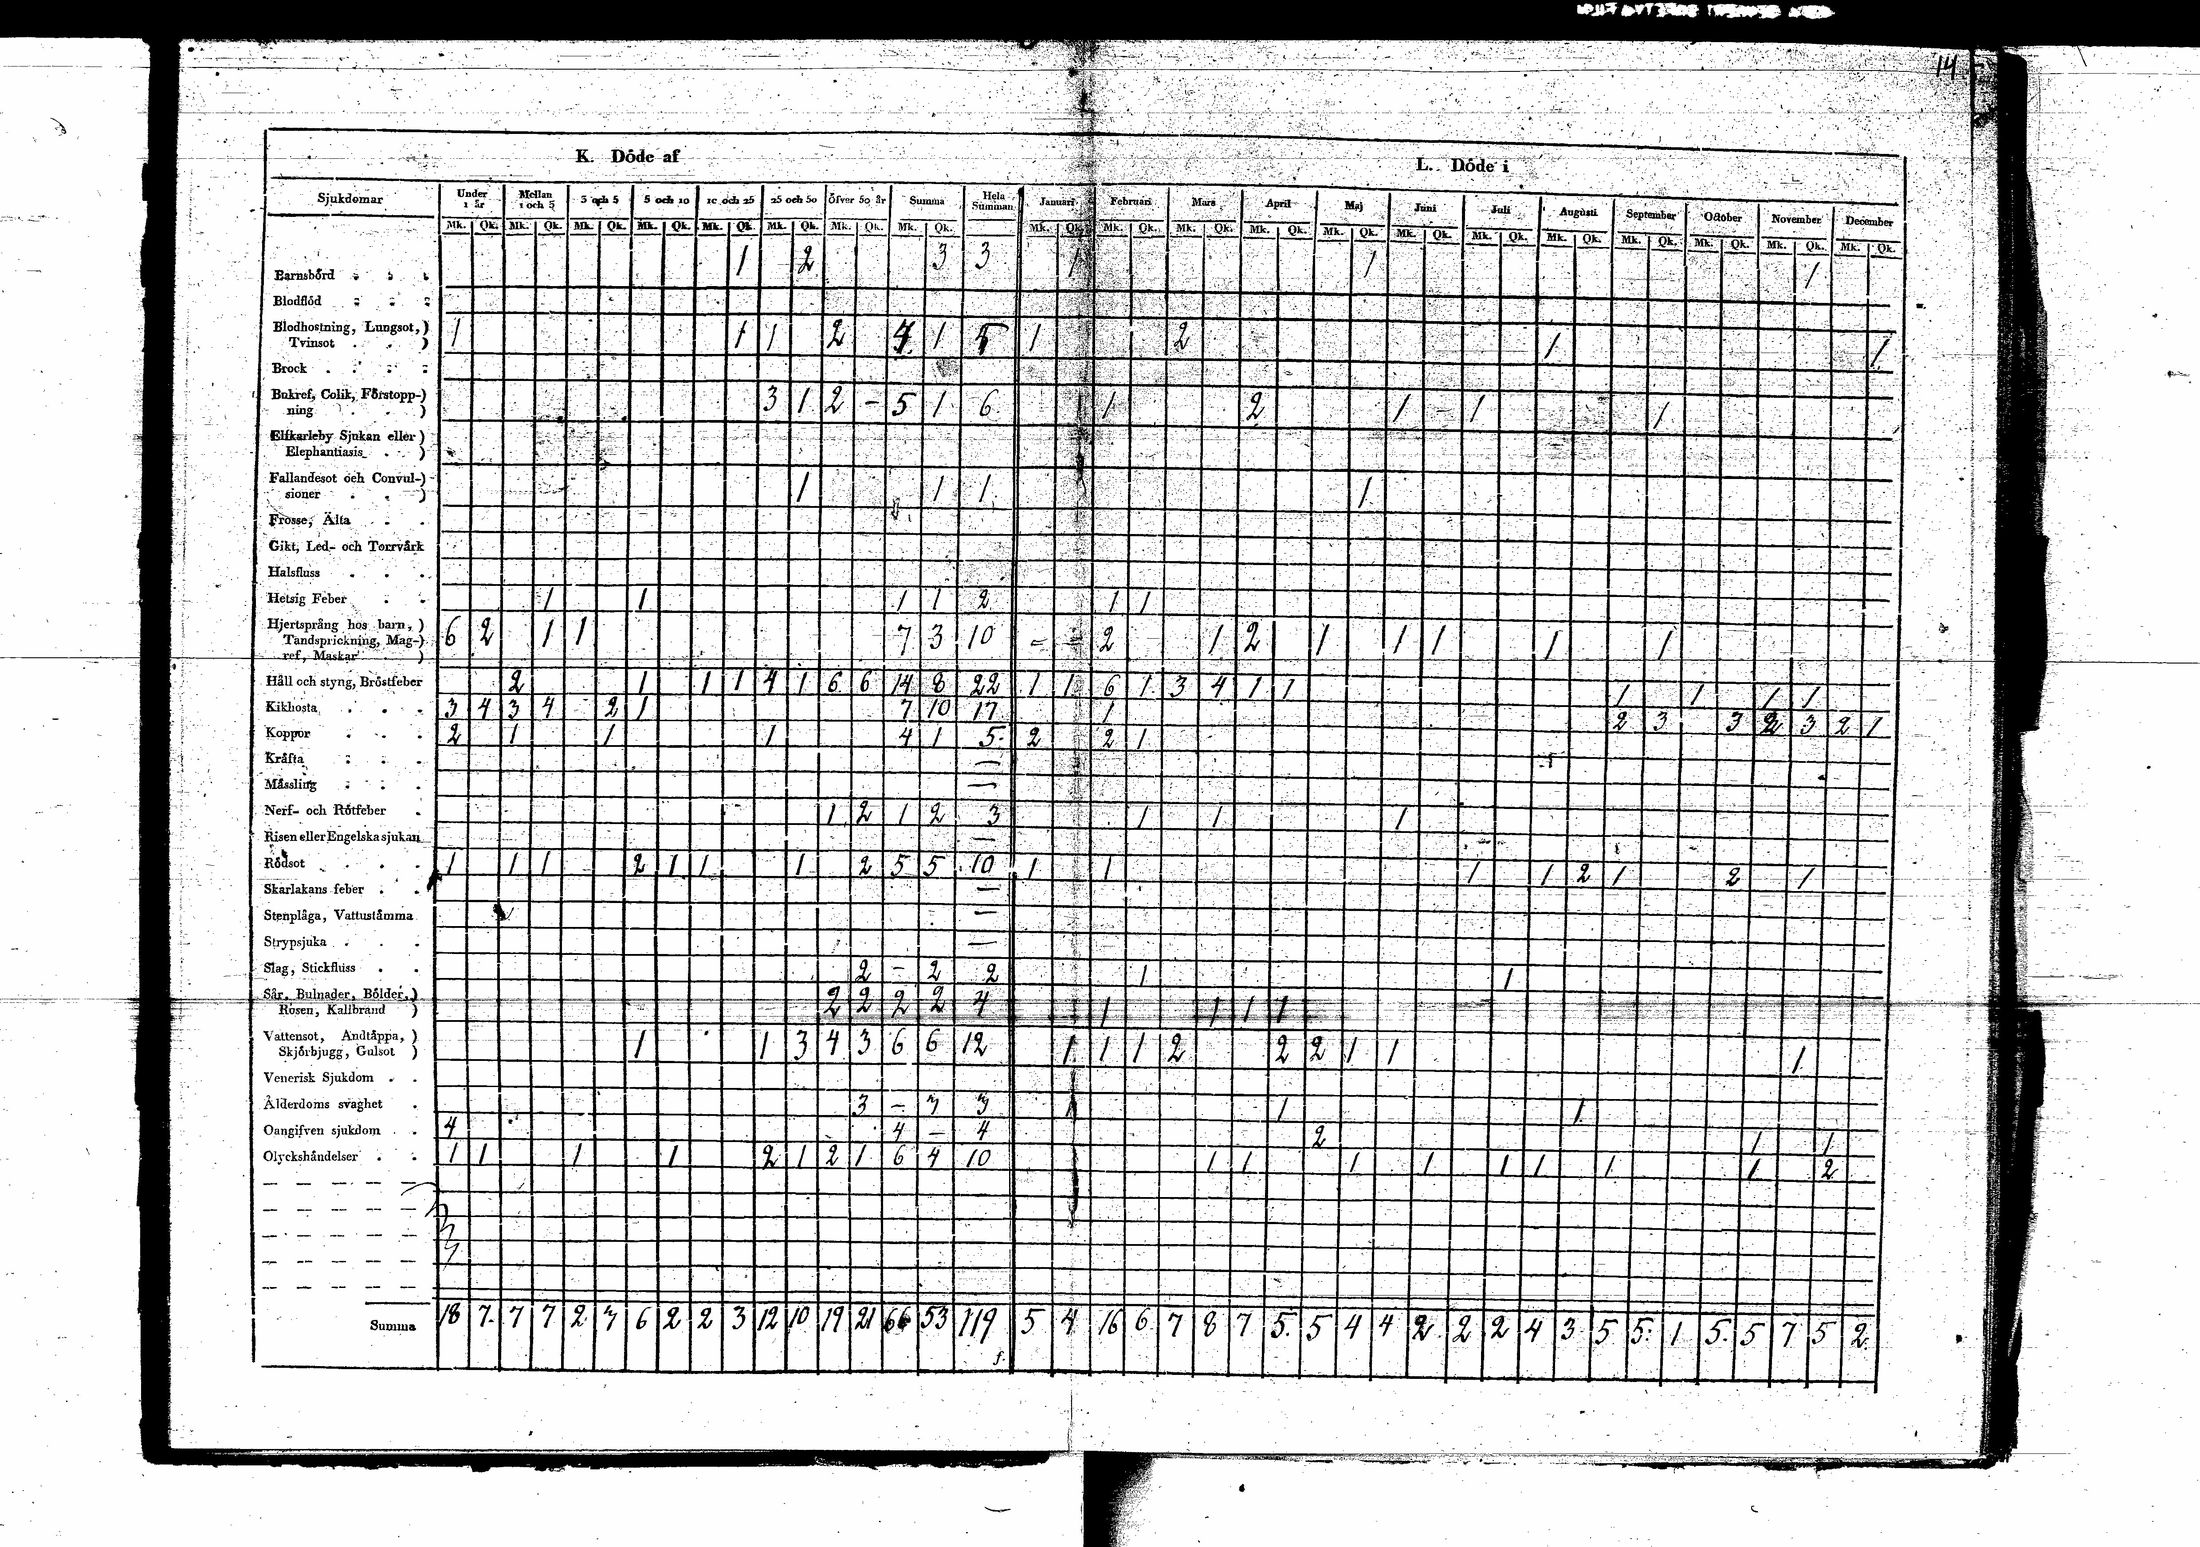 14
K. Döde af
L. Döde i
Sjukdomar Under 1 år Mellan 1 och 3 3 och 5 5 och 10 10 och 25 25 och 50 Öfver 50 år Summa Hela Summan Januari Februari Mars April Maj Juni Juli Augusti September October November December
Mk. Qk. Mk. Qk. Mk. Qk. Mk. Qk. Mk. Qk. Mk. Qk. Mk. Qk. Mk. Qk. Mk. Qk. Mk. Qk. Mk. Qk. Mk. Qk. Mk. Qk. Mk. Qk. Mk. Qk. Mk. Qk. Mk. Qk. Mk. Qk. Mk. Qk. Mk. Qk.
Barnsbörd 1 2 3 3 1 1 1
Blodflöd
Blodhostning, Lungsot,)
Tvinsot ) 1 1 1 2 4 1 5 1 2 1 1
Brock
Bukref, Colik, Förstopp-)
ning ) 3 1 2 - 5 1 6 1 2 1 - 1 1
Elfkarleby Sjukan eller)
Elephantiasis )
Fallandesot och Convul-)
sioner ) 1 1 1 1
Frosse, Älta
Gikt, Led- och Torrvärk
Halsfluss
Hetsig Feber 1 1 1 1 2 1 1
Hjertsprång hos barn,)
Tandsprickning, Mag-)
ref, Maskar ) 6 2 1 1 7 3 10 - - 2 1 2 1 1 1 1 1
Håll och styng, Bröstfeber 2 1 1 1 4 1 6 6 14 8 22 1 1 6 1 3 4 1 1 1 1 1 1
Kikhosta 3 4 3 4 2 1 7 10 17 1 2 3 3 2 3 2 1
Koppor 2 1 1 1 4 1 5 2 2 1
Kräfta —
Mässling —
Nerf- och Rötfeber 1 2 1 2 3 1 1 1
Risen eller Engelska sjukan —
Rödsot 1 1 1 2 1 1 1 2 5 5 10 1 1 1 1 2 1 2 1
Skarlakans feber —
Stenplåga, Vattustämma —
Strypsjuka —
Slag, Stickfluss 2 - 2 2 1 1
Sår, Bulnader, Bölder,)
Rosen, Kallbrand ) 2 2 2 2 4 1 1 1 1
Vattensot, Andtäppa, )
Skjörbjugg, Gulsot ) 1 1 3 4 3 6 6 12 1 1 1 2 2 2 1 1 1
Venerisk Sjukdom
Ålderdoms svaghet 3 - 3 3 1 1 1
Oangifven sjukdom 4 4 - 4 2 1 1
Olyckshändelser 1 1 1 1 2 1 2 1 6 4 10 1 1 1 1 1 1 1 1 2
Summa 18 7 7 7 2 3 6 2 2 3 12 10 19 21 66 53 119 5 4 16 6 7 8 7 5 5 4 4 2 2 2 4 3 5 5 1 5 5 7 5 2